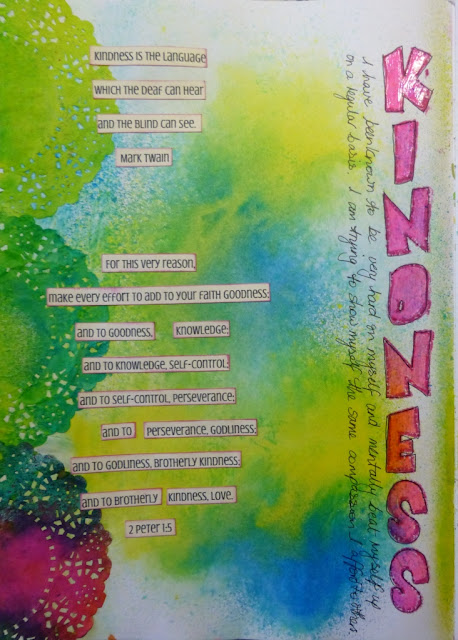 KINDNESS
I have been known to be very hard on myself and mentally beat myself up
on a regular basis. I am trying to show myself the same compassion I
KINDNESS IS THE LANGUAGE
WHICH THE DEAF CAN HEAR
AND THE BLIND CAN SEE.
MARK TWAIN
FOR THIS VERY REASON,
MAKE EVERY EFFORT TO ADD TO YOUR FAITH GOODNESS;
AND TO GOODNESS, KNOWLEDGE;
AND TO KNOWLEDGE, SELF-CONTROL;
AND TO SELF-CONTROL, PERSEVERANCE;
AND TO PERSEVERANCE, GODLINESS;
AND TO GODLINESS, BROTHERLY KINDNESS;
AND TO BROTHERLY KINDNESS, LOVE.
2 PETER 1:5